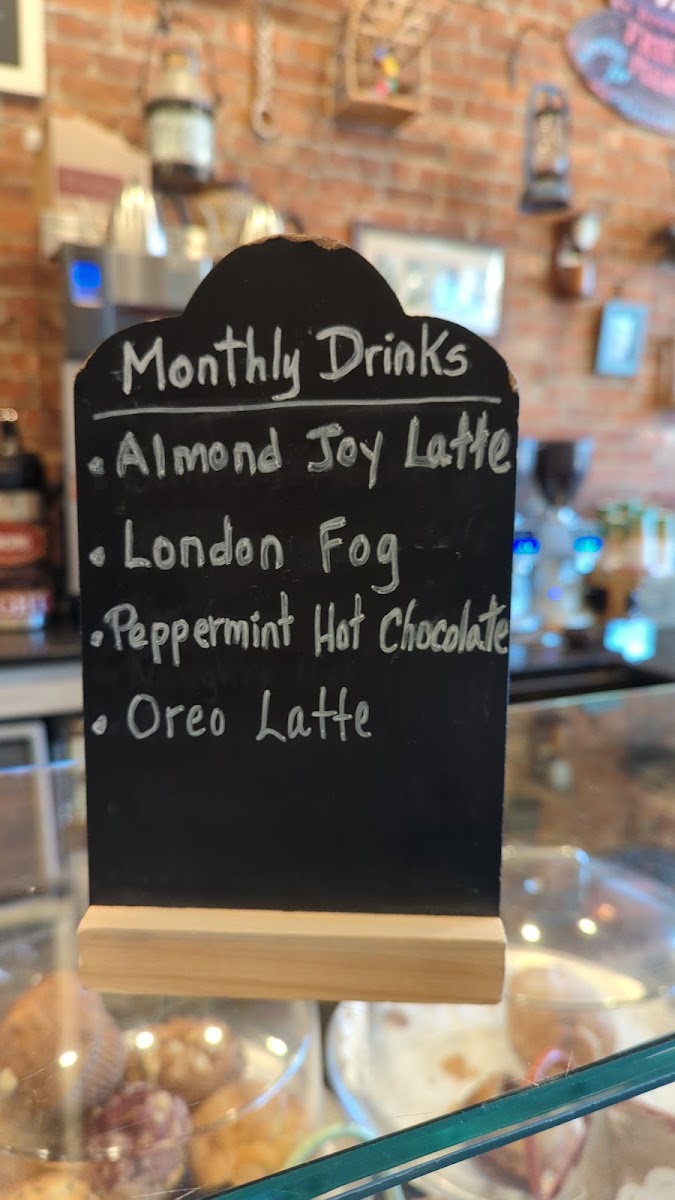 Monthly Drinks
• Almond Joy Latte
• London Fog
• Peppermint Hot Chocolate
• Oreo Latte